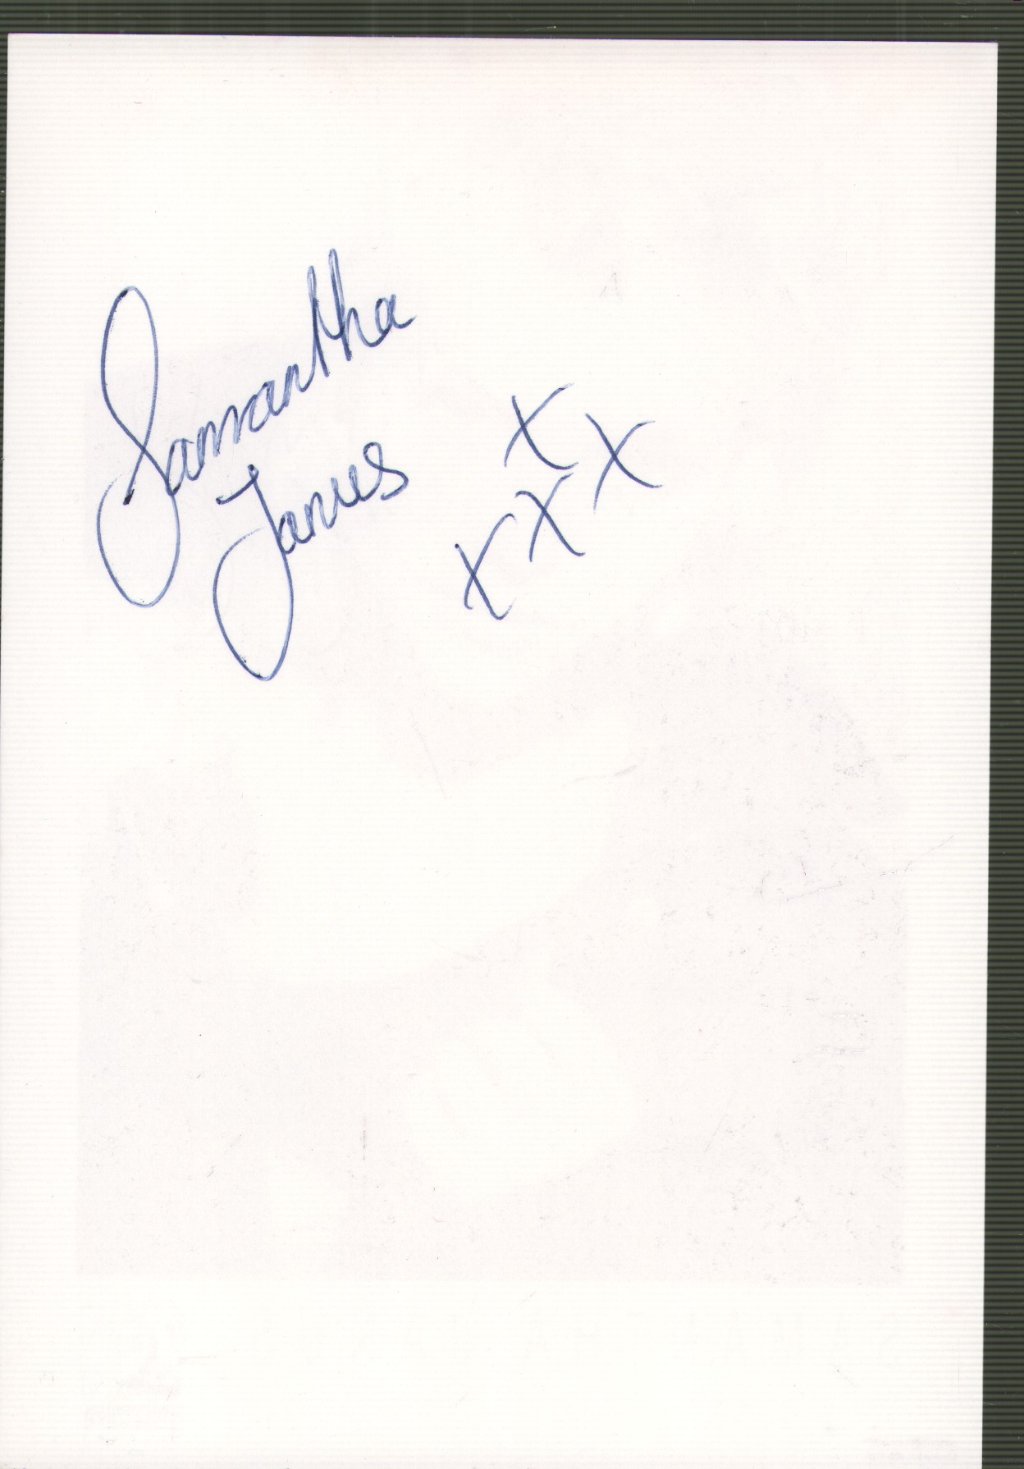 Samantha
Janus
xxxx